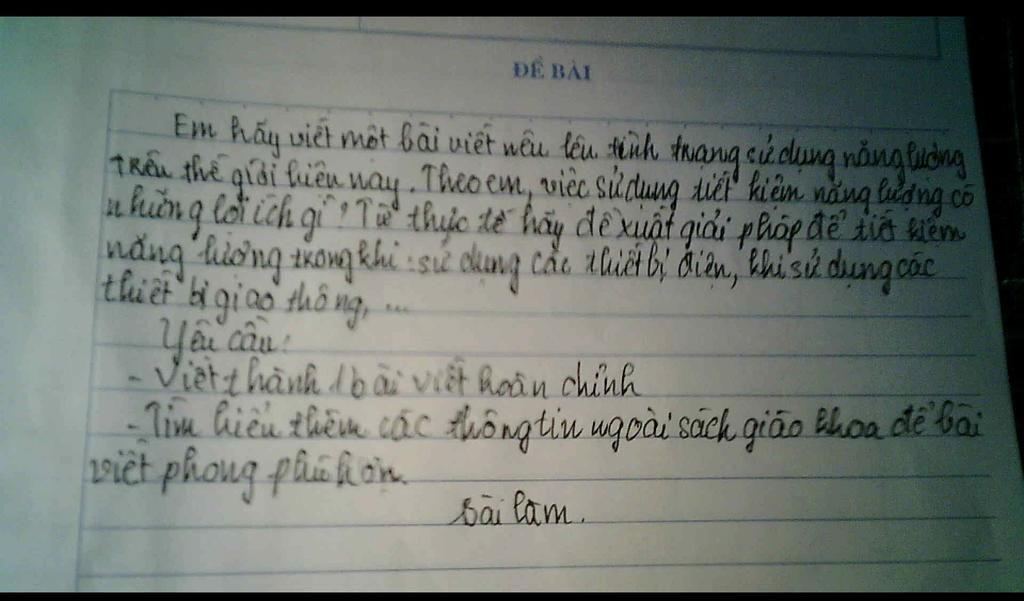 ĐỀ BÀI
Em hãy viết một bài viết nêu lên tình trạng sử dụng năng lượng
trên thế giới hiện nay. Theo em, việc sử dụng tiết kiệm năng lượng có
những lợi ích gì? Từ thực tế hãy đề xuất giải pháp để tiết kiệm
năng lượng trong khi: sử dụng các thiết bị điện, khi sử dụng các
thiết bị giao thông, ...
Yêu cầu:
- Viết thành 1 bài viết hoàn chỉnh
- Tìm hiểu thêm các thông tin ngoài sách giáo khoa để bài
viết phong phú hơn.
Bài làm.